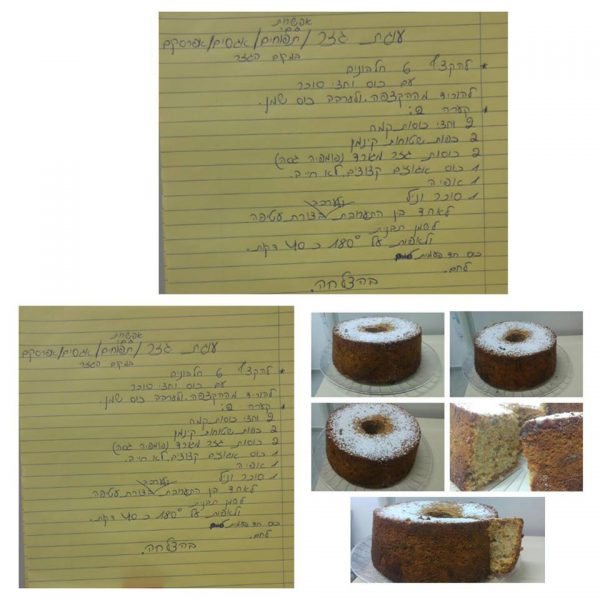 אפשרות
גם
עוגת גזר/תפוחים/אגסים/אפרסקים
במקום הגזר
* להקציף 6 חלבונים
עם כוס וחצי סוכר
להוריד מההקצפה ולערבב כוס שמן.
* קערה 2:
2 וחצי כוסות קמח
2 כפות שטוחות קינמון
2 כוסות גזר מגורד (פומפיה גסה)
1 כוס אגוזים קצוצים לא חייב.
1 אפיה
1 סוכר וניל
לאחד בין התערובת בצורת עטיפה
לשמן תבנית
ולאפות על 180° כ 40 דקות.
כוס חד פעמית
לחם.
בהצלחה.
אפשרות
גם
עוגת גזר/תפוחים/אגסים/אפרסקים
במקום הגזר
* להקציף 6 חלבונים
עם כוס וחצי סוכר
להוריד מההקצפה ולערבב כוס שמן.
* קערה 2:
2 וחצי כוסות קמח
2 כפות שטוחות קינמון
2 כוסות גזר מגורד (פומפיה גסה)
1 כוס אגוזים קצוצים לא חייב.
1 אפיה
1 סוכר וניל
לאחד בין התערובת בצורת עטיפה
לשמן תבנית
ולאפות על 180° כ 40 דקות.
כוס חד פעמית
לחם.
בהצלחה.